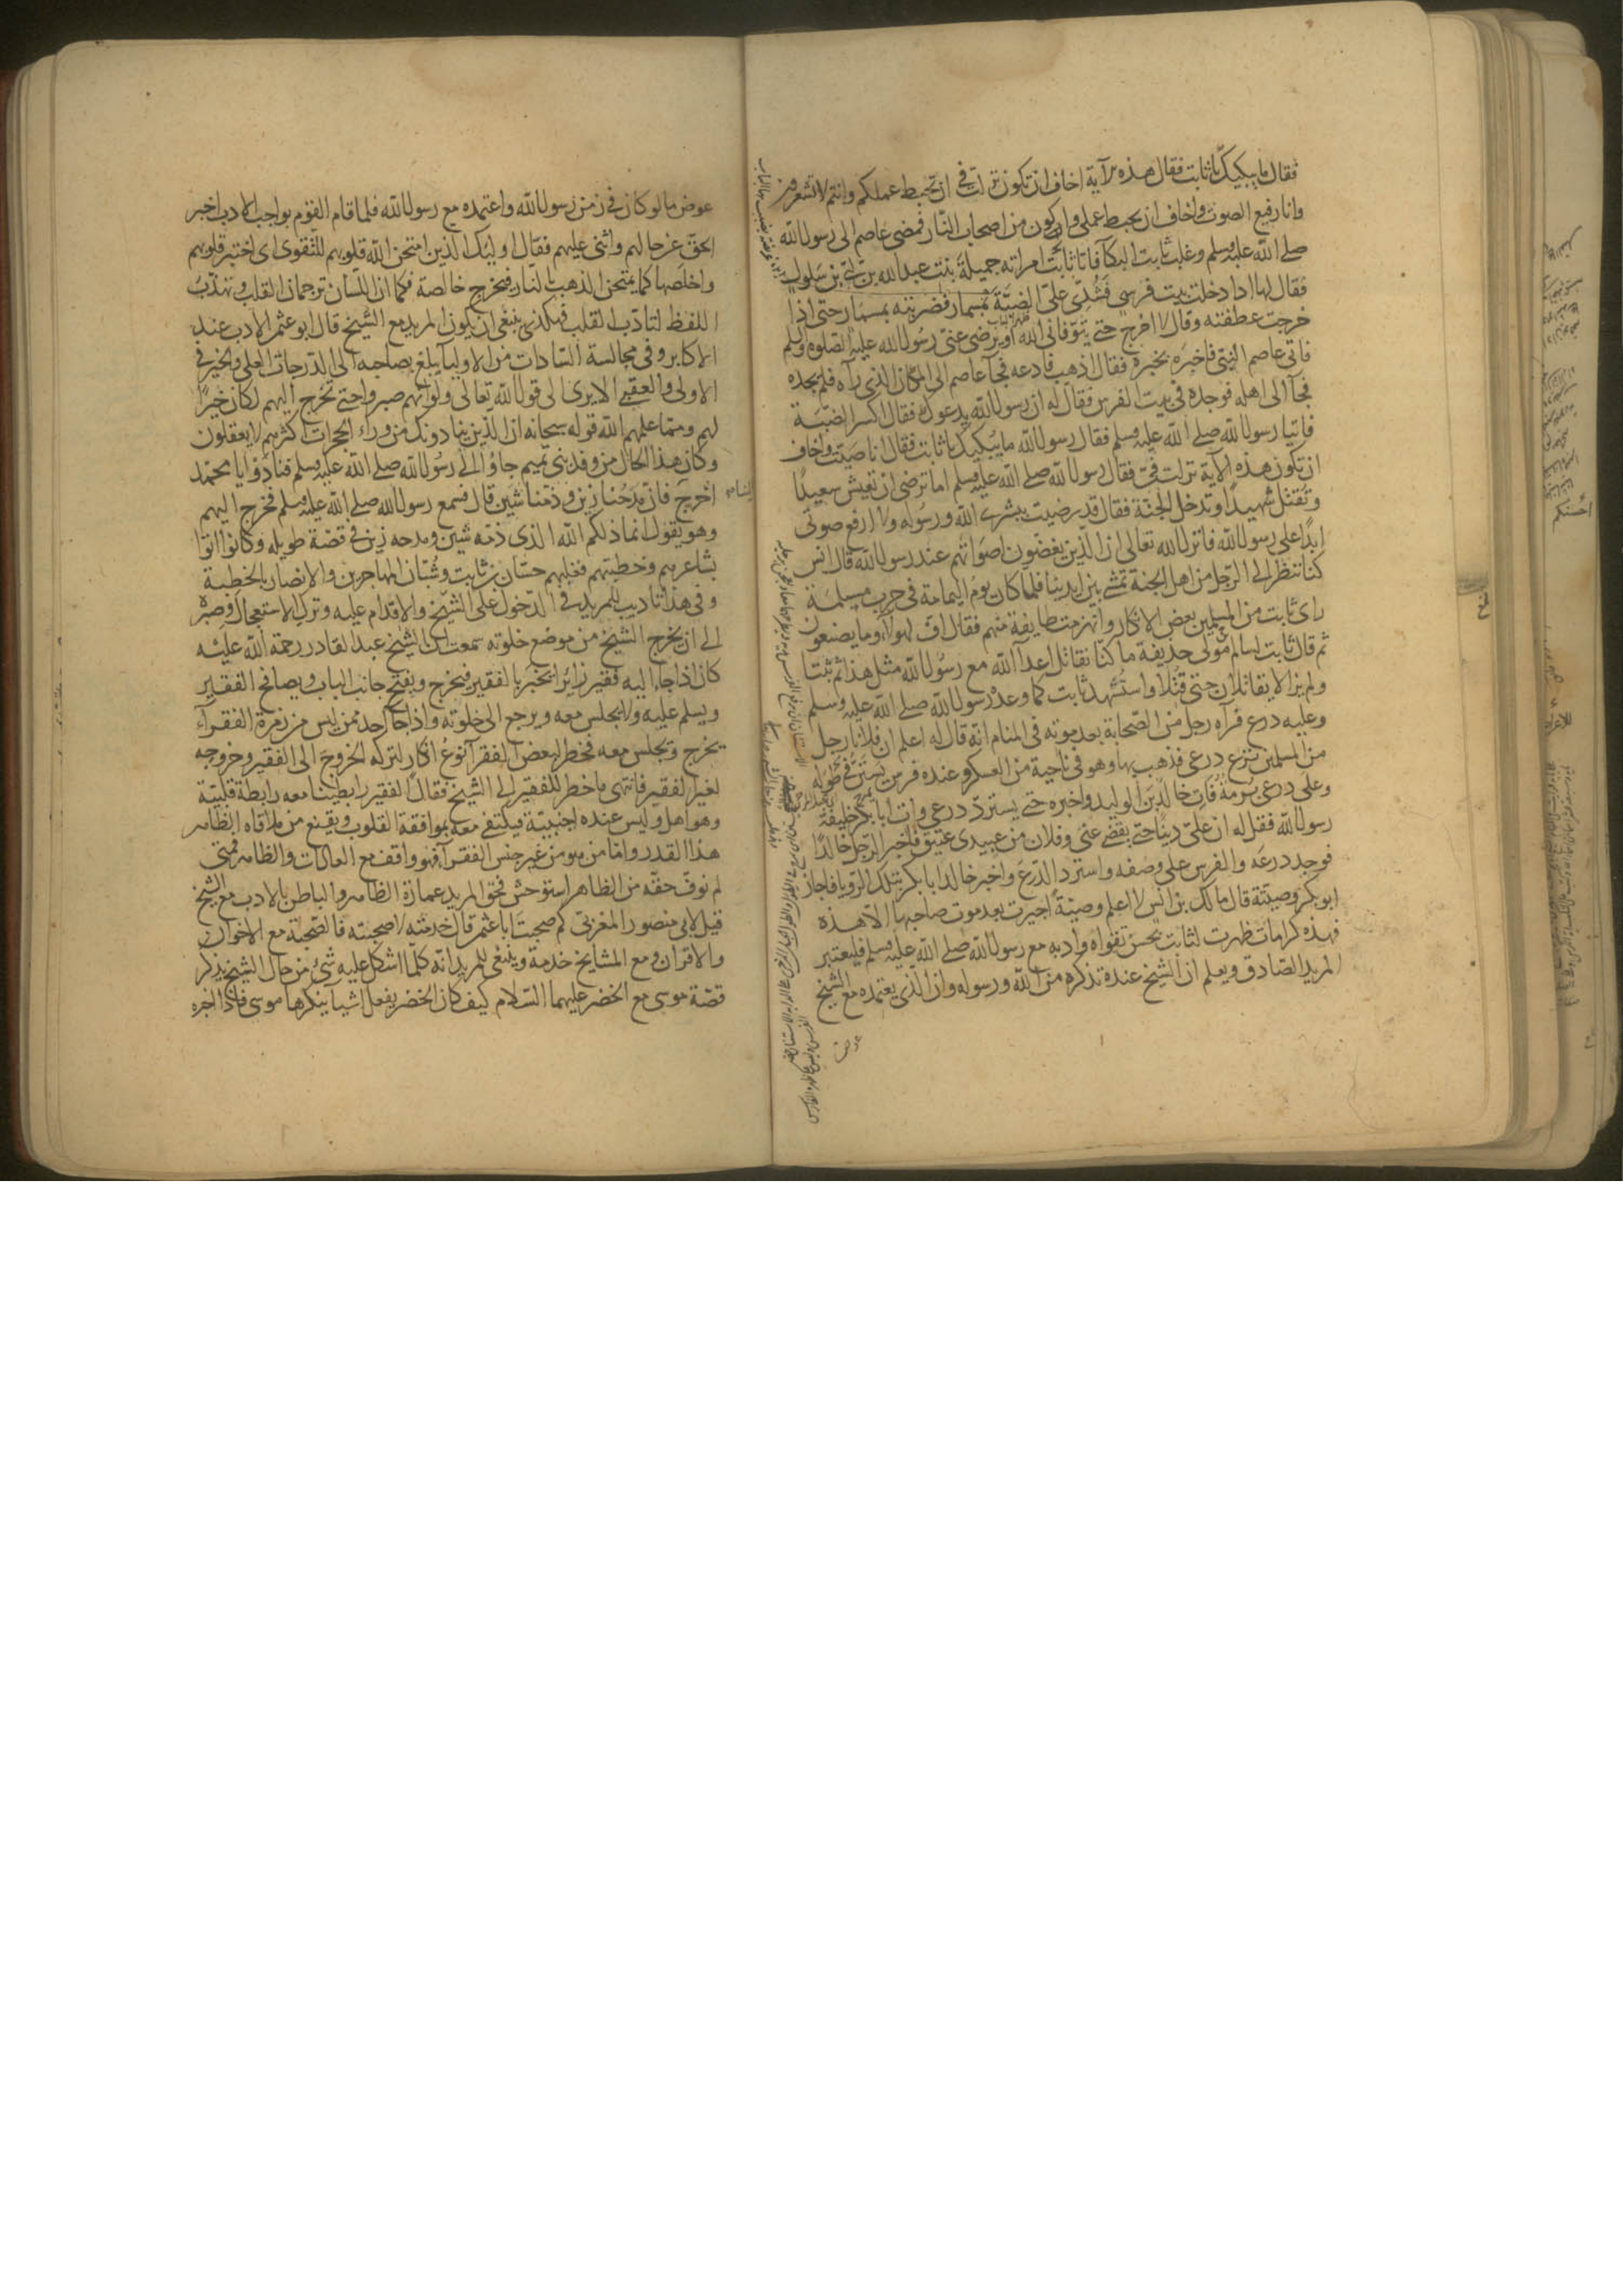 فقال ما يبكيك يا ثابت فقال هذه الآية اخاف ان تكون نزلت فيّ ان تحبط اعمالكم وانتم لا تشعرون
وانا رفيع الصوت واخاف ان يحبط عملي وان اكون من اصحاب النار فمضى عاصم الى رسول الله
صلى الله عليه وسلم وغلب ثابت البكآ فاتا ثابت امراته جميلة بنت عبد الله بن ابيّ بن سلول
فقال لها اذا دخلت بيت فرسي فشدّي عليّ الضبّة بمسمار فضربته بمسمار حتى اذا
خرجت عطفته وقال لا اخرج حتى يتوفاني الله او يرضى عني رسول الله عليه الصلوة والسلم
فاتى عاصم النبي فاخبره بخبره فقال اذهب فادعه فجآ عاصم الى المكان الذي رآه فلم يجده
فجآ الى اهله فوجده في بيت الفرس فقال له ان رسول الله يدعوك فقال اكسر الضبّة
فاتيا رسول الله صلى الله عليه وسلم فقال رسول الله ما يبكيك يا ثابت فقال انا صيّت واخاف
ان تكون هذه الآية نزلت فيّ فقال رسول الله صلى الله عليه وسلم اما ترضى ان تعيش سعيدًا
وتقتل شهيدًا وتدخل الجنة فقال قد رضيت ببشرى الله ورسوله ولا ارفع صوتي
ابدًا على رسول الله فانزل الله تعالى ان الذين يغضّون اصواتهم عند رسول الله قال انس
كنا ننظر الى الرجل من اهل الجنة تمشي بين ايدينا فلما كان يوم اليمامة في حرب مسيلمة
راى ثابت من المسلمين بعض الانكار وانهزمت طايفة منهم فقال افّ لهولاء وما يصنعون
ثم قال ثابت لسالم مولى حذيفة ما كنا نقاتل اعدآ الله مع رسول الله مثل هذا ثم ثبتا
ولم يزالا يقاتلان حتى قتلا واستشهد ثابت كما وعده رسول الله صلى الله عليه وسلم
وعليه درع فرآه رجل من الصحابة بعد موته في المنام انه قال له اعلم ان فلانًا رجل
من المسلمين نزع درعي فذهب بها وهو في ناحية من العسكر وعنده فرس يستنّ في طوله
وعلى درعي برمة فات خالد بن الوليد واخبره حتى يستردّ درعي وات ابا بكر خليفة
رسول الله فقل له ان عليّ دينًا حتى يقضي عني وفلان من عبيدي عتيق فاخبر الرجل خالدًا
فوجد درعه والفرس على وصفه واسترد الدرع واخبر خالد ابا بكر بتلك الرويا فاجاز
ابو بكر وصيته قال مالك بن انس لا اعلم وصيّة اجيزت بعد موت صاحبها الا هذه
فهذه كرامات ظهرت لثابت بحسن تقواه وادبه مع رسول الله صلى الله عليه وسلم فليعتبر
المريد الصادق ويعلم ان الشيخ عنده تذكرة من الله ورسوله وان الذي يعتمده مع الشيخ
عوض
عوض ما لو كان في زمن رسول الله واعتمده مع رسول الله فلما قام القوم بواجب الادب اخبر
الحق عن حالهم واثنى عليهم فقال اوليك الذين امتحن الله قلوبهم للتقوى اى اختبر قلوبهم
واخلصها كما يمتحن الذهب بالنار فيخرج خالصة فكما ان اللسان ترجمان القلب وتهذّب
اللفظ لتادّب القلب فهكذى ينبغى ان يكون المريد مع الشيخ قال ابو عثمن الادب عند
الاكابر وفي مجالسة السادات من الاوليا يبلغ بصاحبه الى الدرجات العلى والخير في
الاولى والعقبى الا يرى الى قول الله تعالى ولو انهم صبروا حتى تخرج اليهم لكان خيرًا
لهم ومما علمهم الله قوله سبحانه ان الذين ينادونك من وراء الحجرات اكثرهم لا يعقلون
وكان هذا الحال من وفد بني تميم جاؤا الى رسول الله صلى الله عليه وسلم فنادوا يا محمد
اخرج الينا فان مدحنا زين وذمنا شين قال فسمع رسول الله صلى الله عليه وسلم فخرج اليهم
وهو يقول انما ذلكم الله الذي ذمّه شين ومدحه زين في قصّة طويله وكانوا اتوا
بشاعرهم وخطيبهم فغلبهم حسّان بن ثابت وشبّان المهاجرين والانصار بالخطبة
وفي هذا تاديب للمريد في الدخول على الشيخ والاقدام عليه وترك الاستعجال وصبره
الى ان يخرج الشيخ من موضع خلوته سمعت ان الشيخ عبد القادر رحمة الله عليه
كان اذا جاء اليه فقير زائرًا يخبر بالفقير فيخرج ويفتح جانب الباب ويصافح الفقير
ويسلم عليه ولا يجلس معه ويرجع الى خلوته واذا جآ احد ممن ليس من زمرة الفقرآء
يخرج ويجلس معه فخطر لبعض الفقرآ نوع انكار لتركه الخروج الى الفقير وخروجه
لغير الفقير فانتهى ما خطر للفقير الى الشيخ فقال الفقير رابطتنا معه رابطة قلبيّة
وهو اهل وليس عنده اجنبيّة فيكتفي معه بموافقة القلوب ويقنع من ملاقاة الظاهر
هذا القدر واما من هو من غير جنس الفقرآ فهو واقف مع العادات والظاهر فمتى
لم نوفّ حقه من الظاهر استوحش فحق المريد عمارة الظاهر والباطن بالادب مع الشيخ
قيل لابى منصور المغربي كم صحبت ابا عثمن قال خدمته لا صحبته فالصحبة مع الاخوان
والاقران ومع المشايخ خدمة وينبغى للمريد انه كلّما اشكل عليه شيء من حال الشيخ يذكر
قصّة موسى مع الخضر عليهما السلام كيف كان الخضر يفعل اشيا ينكرها موسى فاذا اخبره